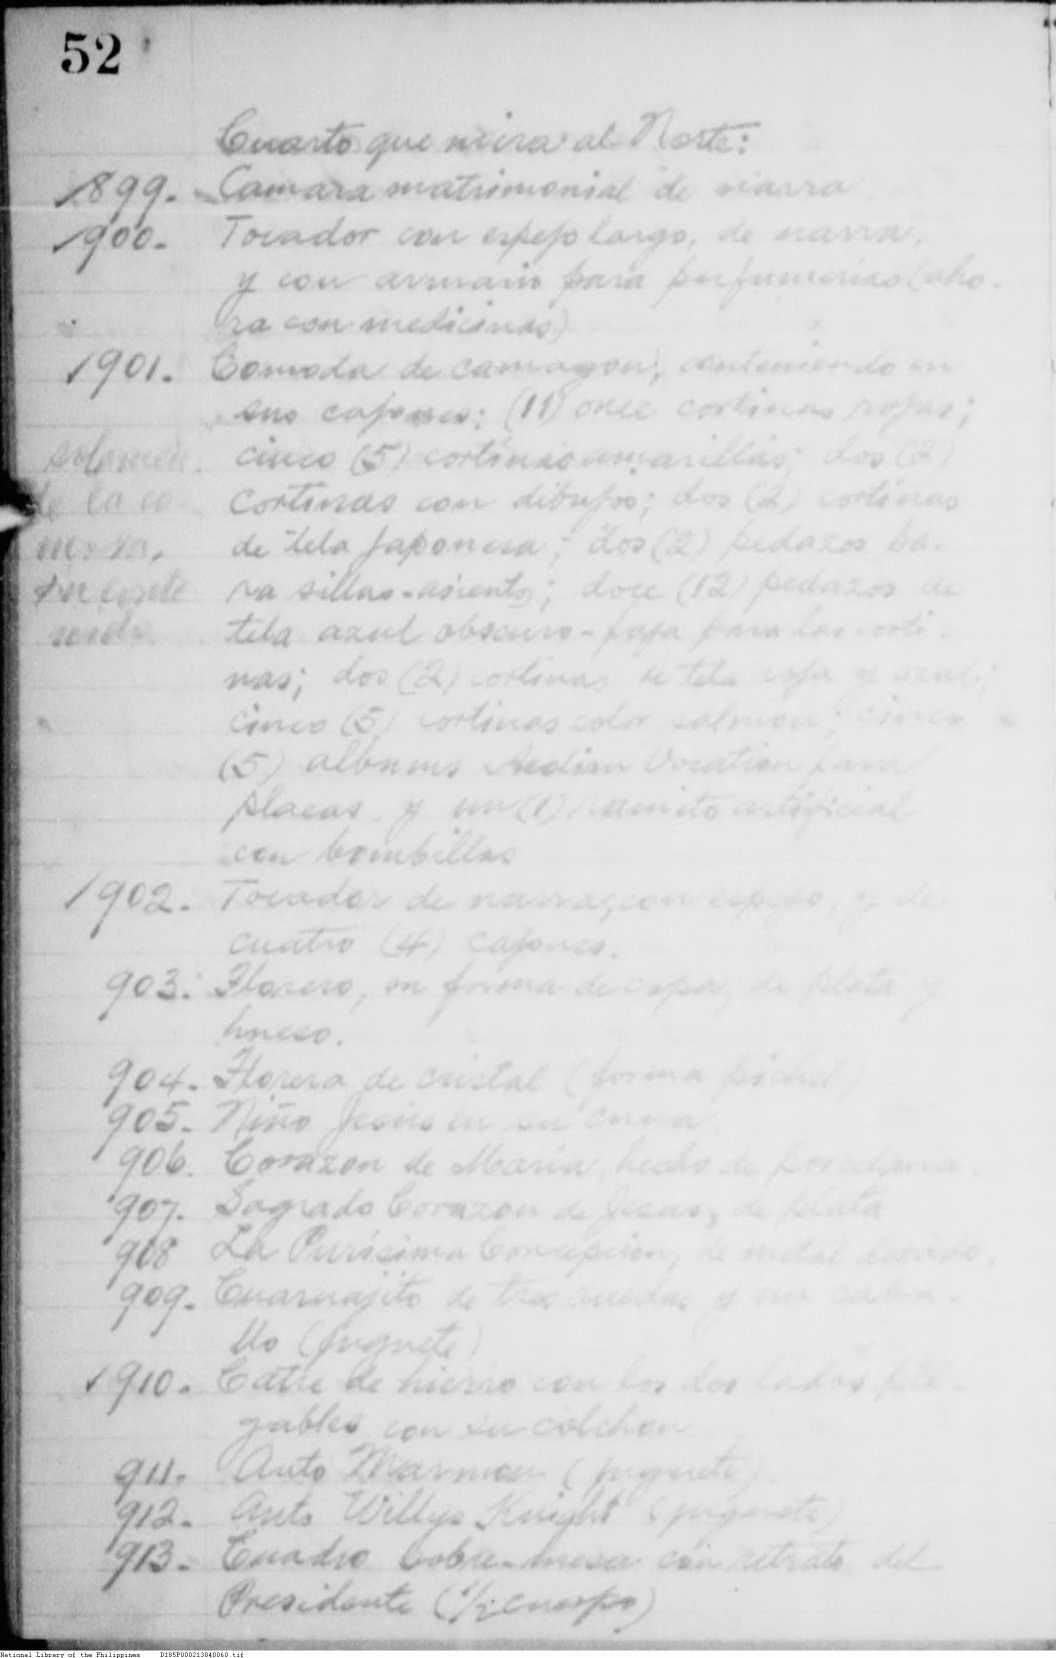 52
Cuarto que mira al Norte:
1899. - Camara matrimonial de narra
1900. Tocador con espejo largo, de narra,
y con armario para perfumerias (aho-
ra con medicinas)
1901. Comoda de camagon; conteniendo en
sus cajones: (11) once cortinas rojas;
cinco (5) cortinas amarillas; dos (2)
cortinas con dibujos; dos (2) cortinas
de tela japonesa; dos (2) pedazos pa-
ra sillas-asiento; doce (12) pedazos de
tela azul obscuro - faja para las corti-
nas; dos (2) cortinas de tela roja y azul;
cinco (5) cortinas color salmon; cinco
(5) albums Aeolian Vocation para
placas y un (1) ramito artificial
con bombillas
solamen.
de la co-
moda,
1902. Tocador de narra, con espejo, y de
cuatro (4) cajones.
903. Florero, en forma de copa, de plata y
hueso.
904. Florera de cristal (forma pichel)
905. Niño Jesus en su cuna
906. Corazon de Maria, hecho de porcelana.
907. Sagrado Corazon de Jesus, de plata
908 La Purisima Concepcion, de metal dorado.
909. Cuaruajito de tres ruedas y un caba-
llo (juguete)
1910. Catre de hierro con los dos lados ple-
gables con su colchon
911. Auto Marmon (juguete)
912. Auto Willys Knight (juguete)
913. Cuadro sobre-mesa con retrato del
Presidente (1/2 cuerpo)
National Library of the Philippines D185P000213040060.tif